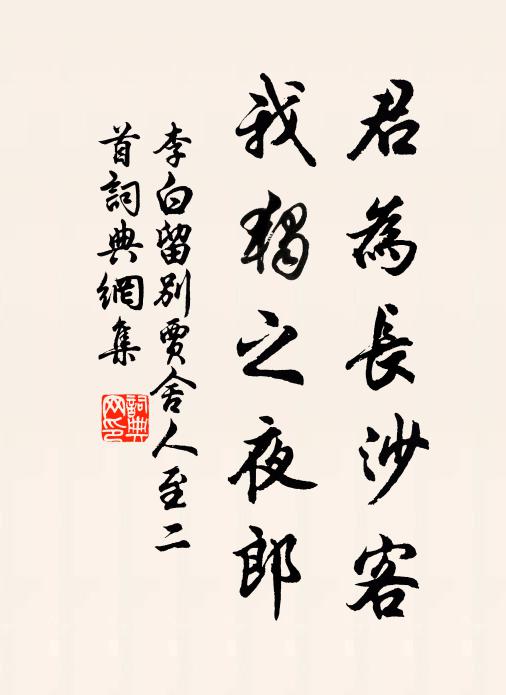 君為長沙客
我獨之夜郎
李白留別賈舍人至二
首詞典網集
詞典網印